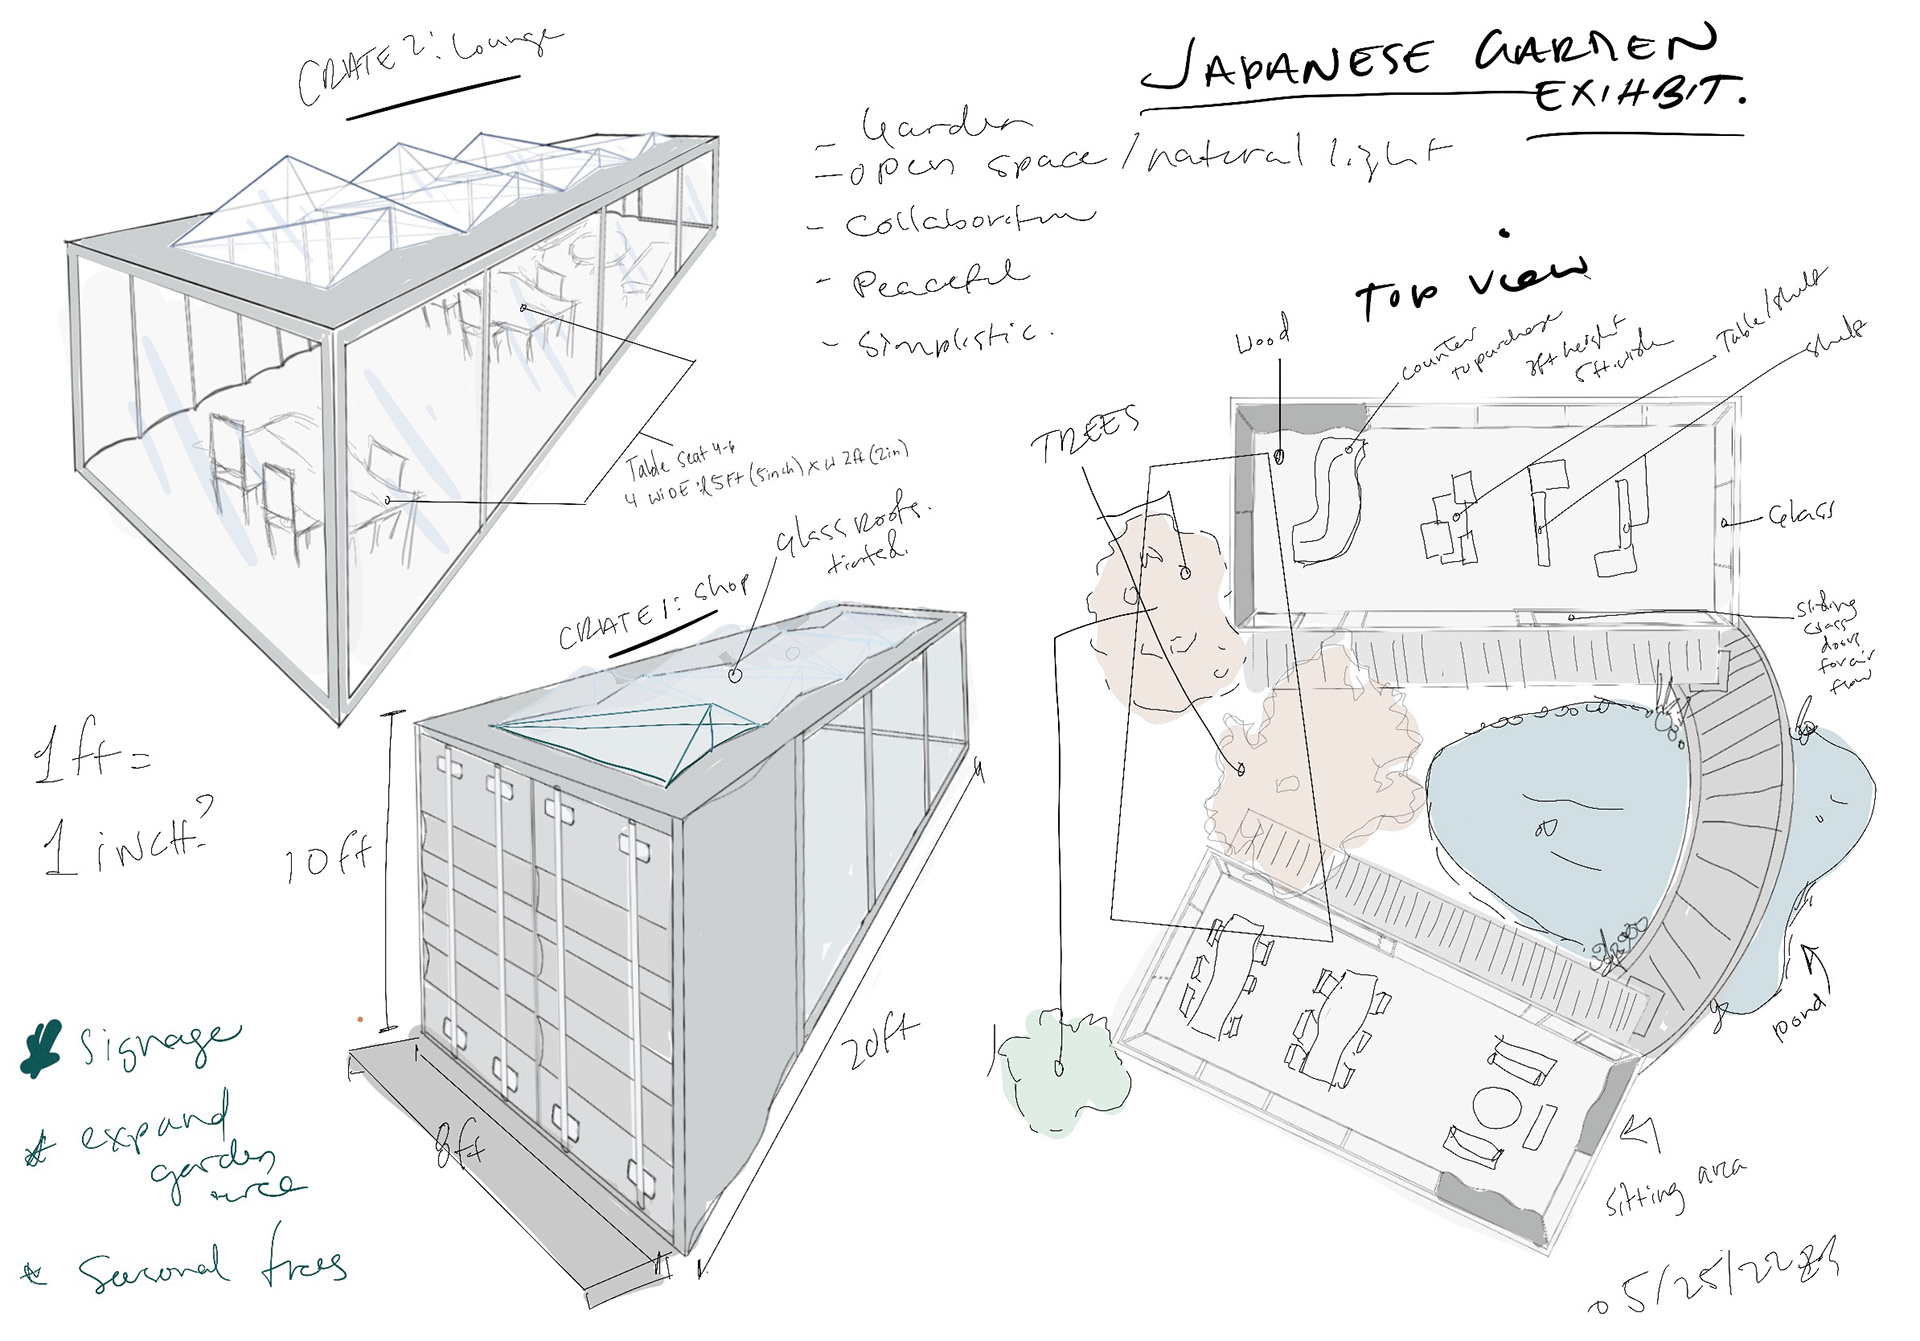 CRATE 2: Lounge
JAPANESE GARDEN
EXIHBIT.
- Garden
- open space/natural light
- Collaboration
- Peaceful
- Simplistic.
TOP VIEW
Wood
counter
to purchase
3ft height
5ft wide
Table/shelf
shelf
TREES
Glass
sliding
glass
doors
for air
flow
Table seat 4-6
Glass roofs.
tinted.
CRATE 1: Shop
1ft =
1 inch?
10ft
20ft
8ft
pond
sitting area
Signage
* expand
garden
* Seasonal trees
05/25/22